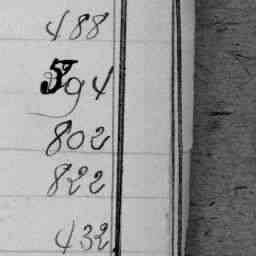 488
594
802
822
432